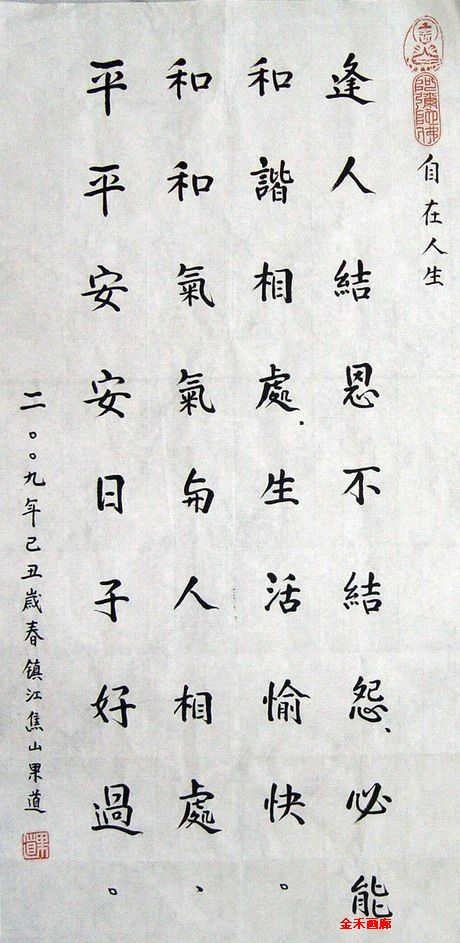 阿彌陀佛
自在人生
逢人結恩不結怨、必能
和諧相處、生活愉快。
和和氣氣与人相處、
平平安安日子好過。
二〇〇九年己丑歲春镇江焦山果道
果道
金禾画廊